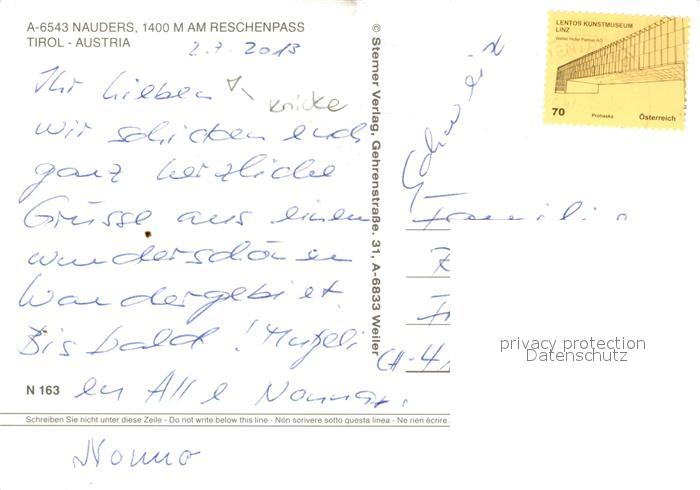 A-6543 NAUDERS, 1400 M AM RESCHENPASS
TIROL - AUSTRIA
2.7. 2013
Ihr Lieben
knicke
wir schicken euch
ganz herzliche
Grüsse aus einem
wunderschönen
Wandergebiet.
Bis bald!
en Alle Nonna
N 163
Schreiben Sie nicht unter diese Zeile - Do not write below this line - Non scrivere sotto questa linea - Ne rien écrire
Nonno
© Stemer Verlag, Gehrenstraße. 31, A-6833 Weiler
LENTOS KUNSTMUSEUM
LINZ
Weber Hofer Partner AG
70
Prohaska
Österreich
Schweiz
Familie
CH-4
privacy protection
Datenschutz